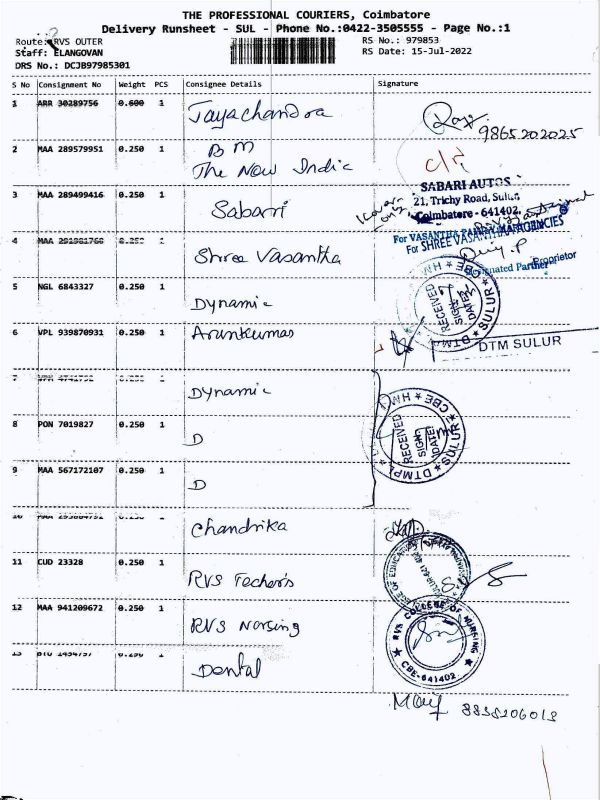 THE PROFESSIONAL COURIERS, Coimbatore
Delivery Runsheet - SUL - Phone No.:0422-3505555 - Page No.:1
Route: RVS OUTER
RS No.: 979853
Staff: ELANGOVAN
RS Date: 15-Jul-2022
DRS No.: DCJB97985301
S No Consignment No Weight PCS Consignee Details Signature
1 ARR 30289756 0.600 1 Jayachandra
9865202025
2 MAA 289579951 0.250 1 BM
The New India
3 MAA 289499416 0.250 1 Sabari
SABARI AUTOS
21, Trichy Road, Sulur
Coimbatore - 641402.
4 1 Shree Vasantha
For SHREE VASANTHA AGENCIES
Proprietor
Designated Partner
5 NGL 6843327 0.250 1 Dynamic
RECEIVED SIGN DATE DTM SULUR CBE HW
6 VPL 939870931 0.250 1 Arunkumar
DTM SULUR
7 1 Dynamic
8 PON 7019827 0.250 1 D
RECEIVED SIGN DATE DTMPL SULUR CBE HW
9 MAA 567172107 0.250 1 D
10 1 Chandrika
11 CUD 23328 0.250 1 RVS Techers
12 MAA 941209672 0.250 1 RVS Norsing
RVS COLLEGE OF NURSING CBE-641402
13 1 Dental